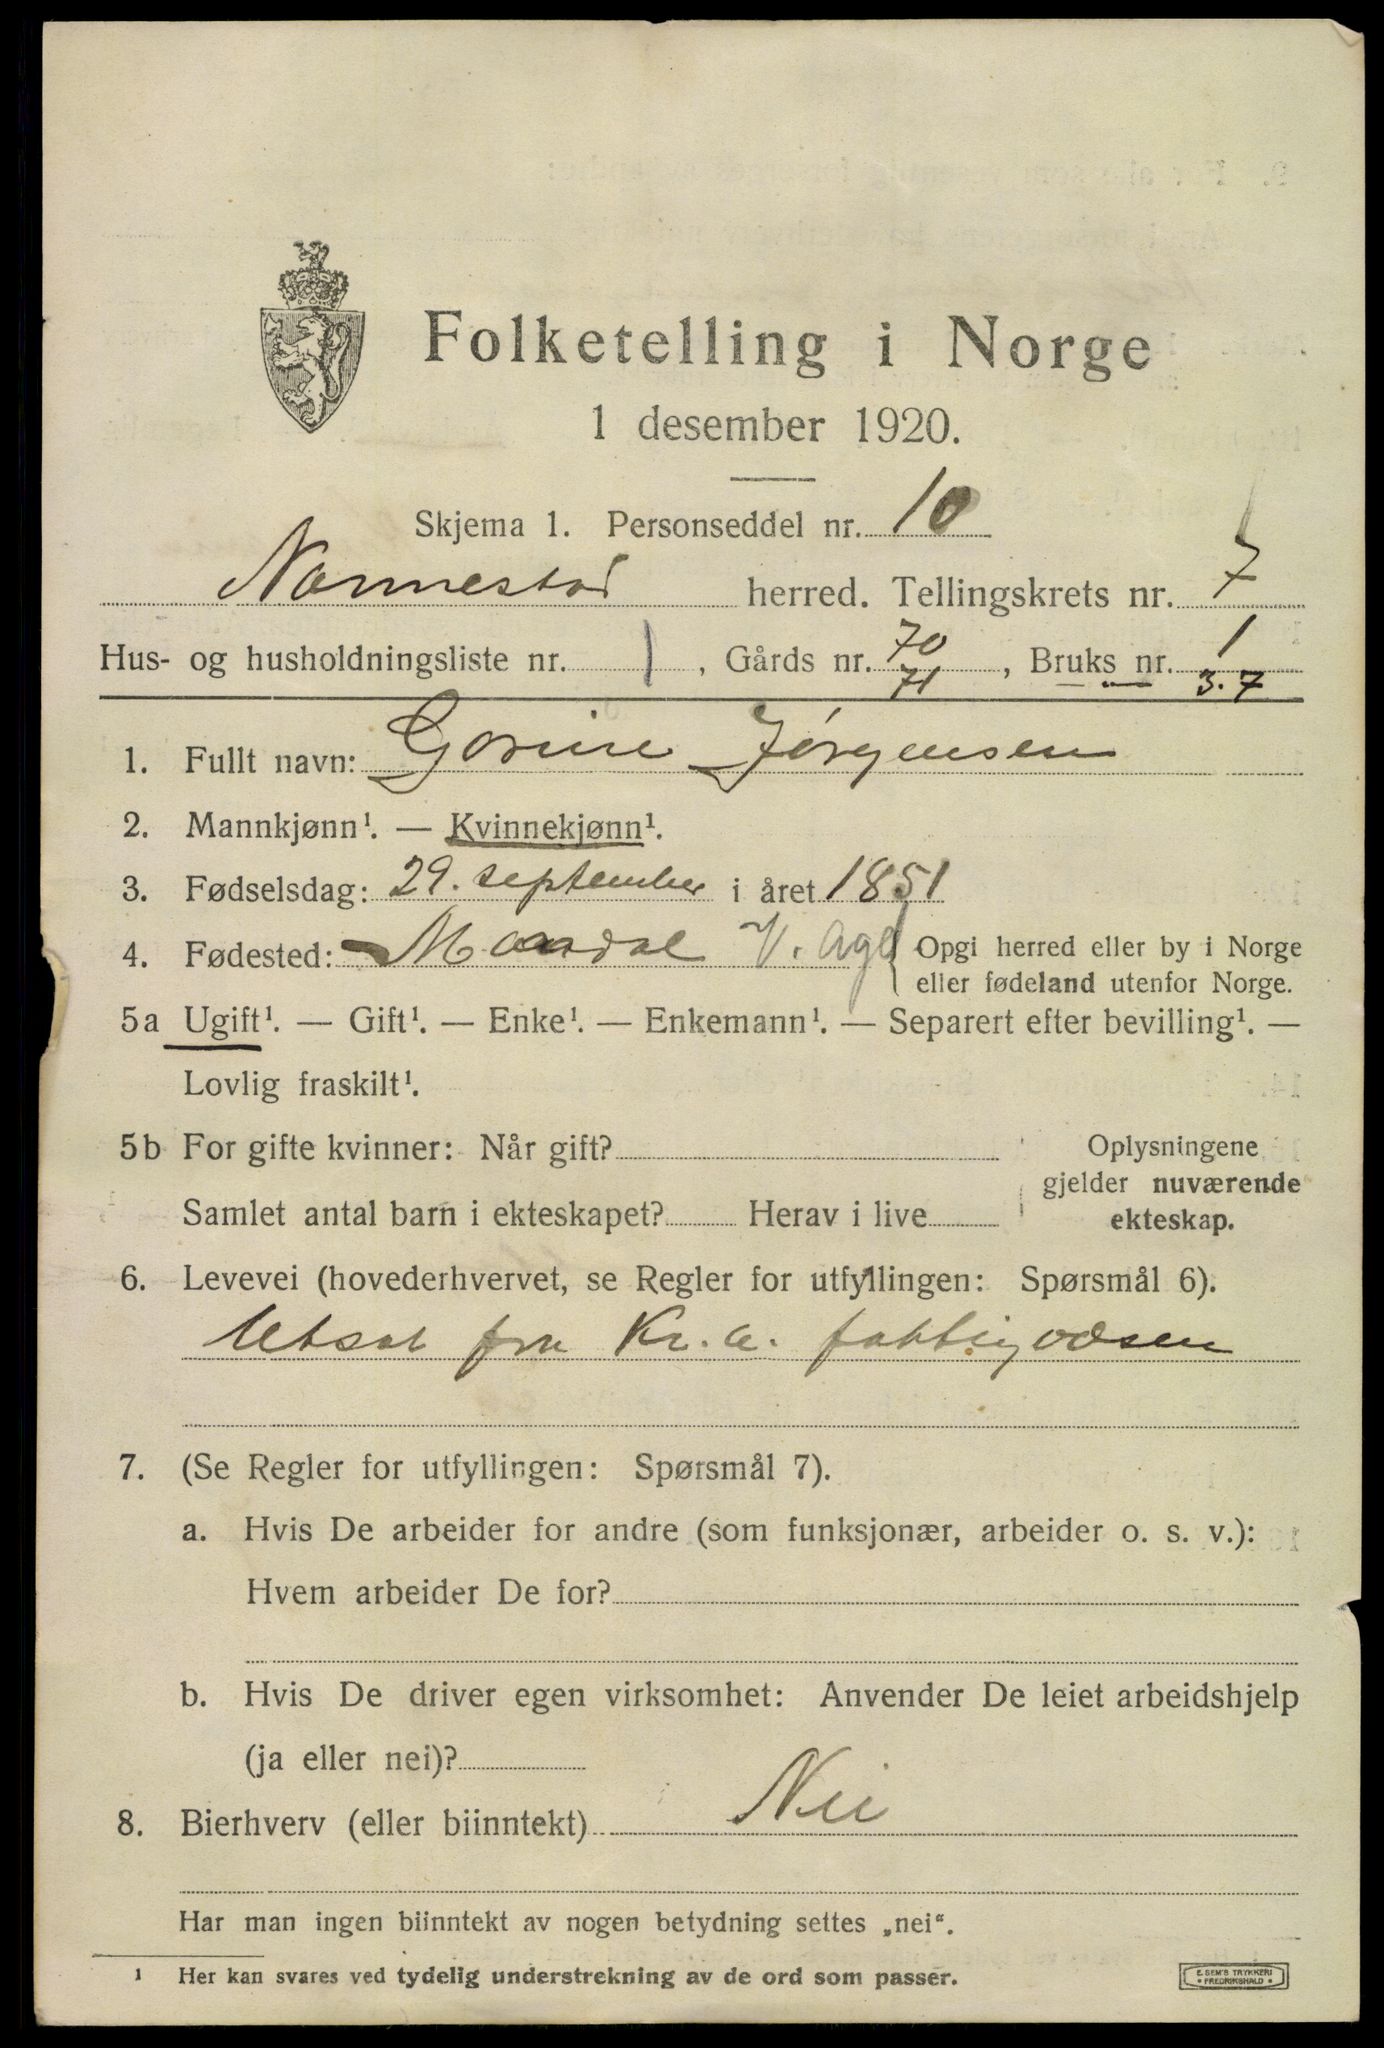 Folketelling i Norge
1 desember 1920.
Skjema 1. Personseddel nr. 10
Nannestad herred. Tellingskrets nr. 7
Hus- og husholdningsliste nr. 1, Gårds nr. 70 71, Bruks nr. 1 3.7
1. Fullt navn: Gorine Jørgensen
2. Mannkjønn¹. — Kvinnekjønn¹.
3. Fødselsdag: 29. september i året 1851
4. Fødested: Mandal V. Agd Opgi herred eller by i Norge
eller fødeland utenfor Norge.
5a Ugift¹. — Gift¹. — Enke¹. — Enkemann¹. — Separert efter bevilling¹. —
Lovlig fraskilt¹.
5b For gifte kvinner: Når gift?
Samlet antal barn i ekteskapet? Herav i live
Oplysningene
gjelder nuværende
ekteskap.
6. Levevei (hovederhvervet, se Regler for utfyllingen: Spørsmål 6).
Utsat fra Kr.a. fattigvæsen
7. (Se Regler for utfyllingen: Spørsmål 7).
a. Hvis De arbeider for andre (som funksjonær, arbeider o. s. v.):
Hvem arbeider De for?
b. Hvis De driver egen virksomhet: Anvender De leiet arbeidshjelp
(ja eller nei)?
8. Bierhverv (eller biinntekt) Nei
Har man ingen biinntekt av nogen betydning settes „nei“.
¹ Her kan svares ved tydelig understrekning av de ord som passer.
E. SEM'S TRYKKERI
FREDRIKSHALD